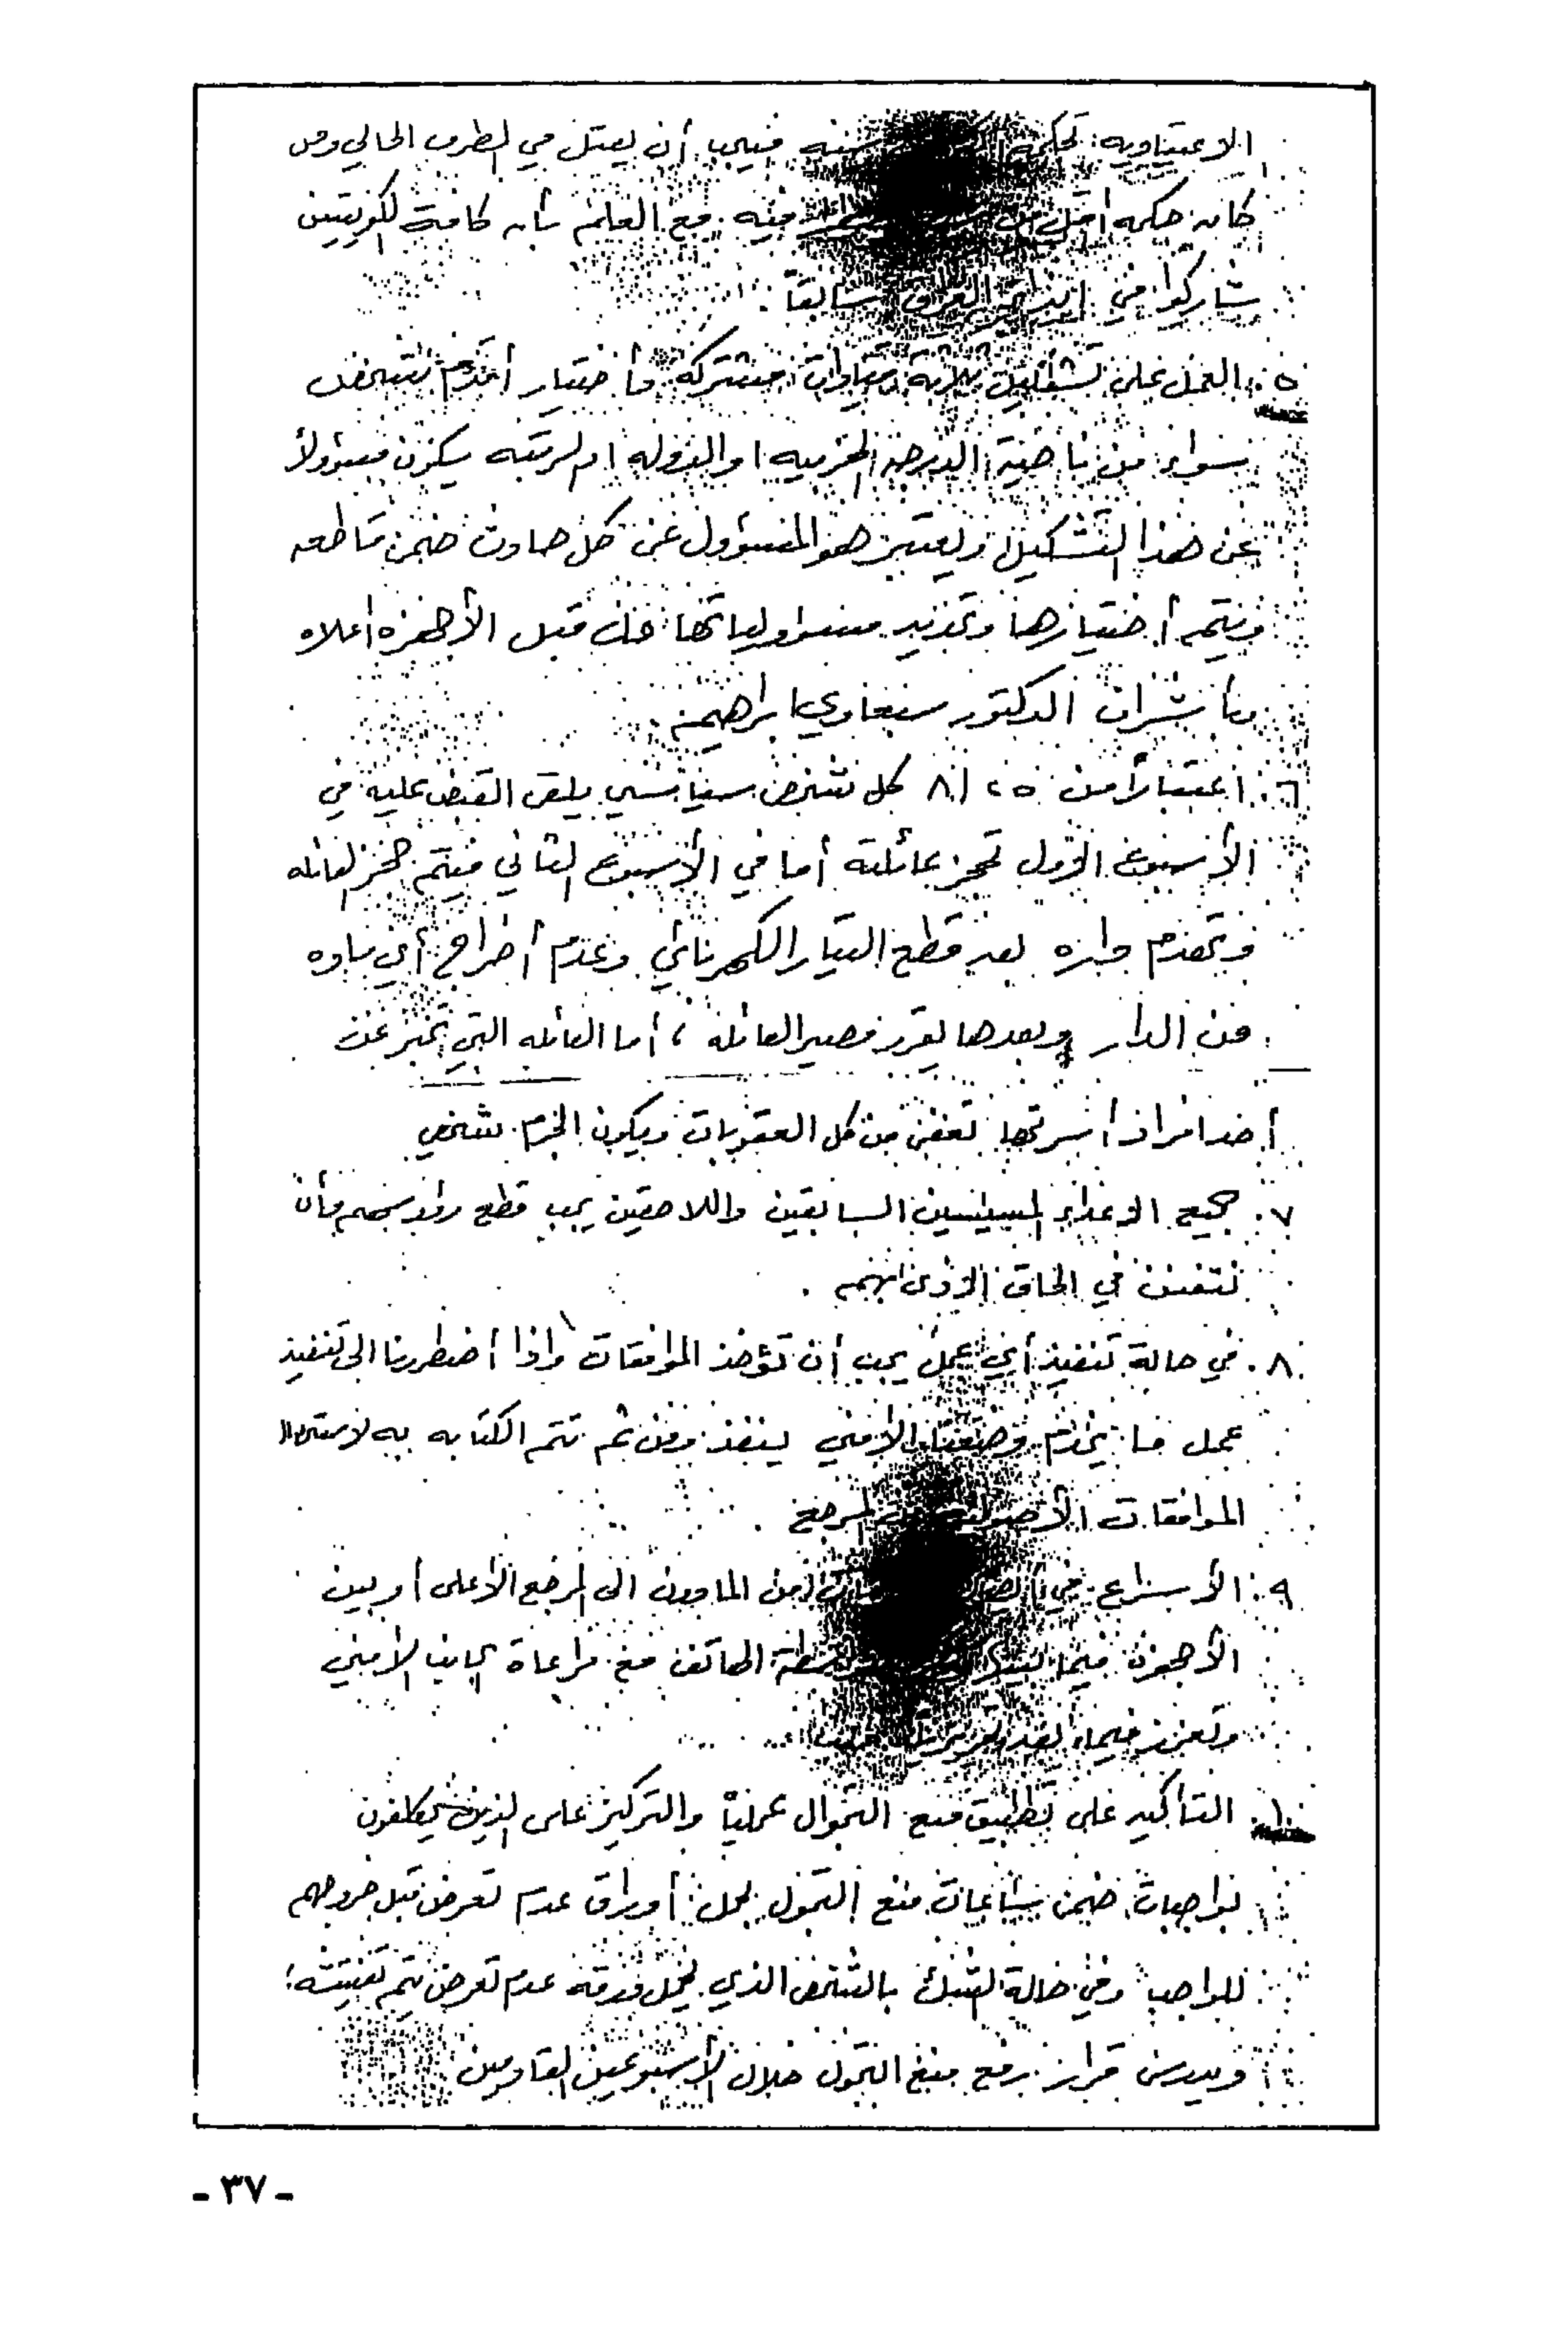 الاعتياديه تحكمه سنه فيجب أن يعتل في الظرف الحالي ومن
كان حكمه أقل من فيه مع العلم بأن كافة الكويتيين
شاركوا في ايذاء العراق سابقاً .
٥. العمل على تشكيل ثلاثة قيادات مشتركة وأختيار أقدم شخص
سواء من ناحية الدرجه الحزبيه او الدوله ام الرتبه يكون مسؤولاً
عن هذا التشكيل ويعتبر هو المسؤول عن كل حادث ضمن قاطعه
ويتم أختيارها وتحديد مسؤولياتها من قبل الأجهزه أعلاه
وبأشراف الدكتور سبعاوي ابراهيم .
٦. اعتباراً من ٢٥ / ٨ كل شخص سياسي يلقى القبض عليه في
الأسبوع الأول تحجز عائلته أما في الأسبوع الثاني فيتم حجز العائله
وتهدم داره بعد قطع التيار الكهربائي وعدم أخراج أي ماده
من الدار وبعدها يقرر مصير العائله ، أما العائله التي تخبر عن
أحد افراد أسرتها تعفى من كل العقوبات ويكون الجرم شخصي
٧. جميع الاعداء السياسيين السابقين واللاحقين يجب قطع رؤوسهم وأن
نتفنن في الحاق الأذى بهم .
٨. في حالة تنفيذ أي عمل يجب أن تؤخذ الموافقات واذا أضطررنا الى تنفيذ
عمل ما يخدم وضعنا الأمني ينفذ ومن ثم تتم الكتابه به لاستحصال
الموافقات الأصوليه من المرجع .
٩. الأسراع في من المادون الى المرجع الأعلى أو بين
الأجهزة فيما بينها بواسطة الهاتف مع مراعاة الجانب الأمني
وتعزز فيما بعد
١٠. التأكيد على تطبيق منع التجوال عملياً والتركيز على الذين يكلفون
بواجبات ضمن ساعات منع التجول بحمل أوراق عدم تعرض قبل خروجهم
للواجب وفي حالة الشك بالشخص الذي يحمل ورقة عدم تعرض يتم تفتيشه
ويدرس قرار رفع منع التجول خلال الأسبوعين القادمين
- ٣٧ -